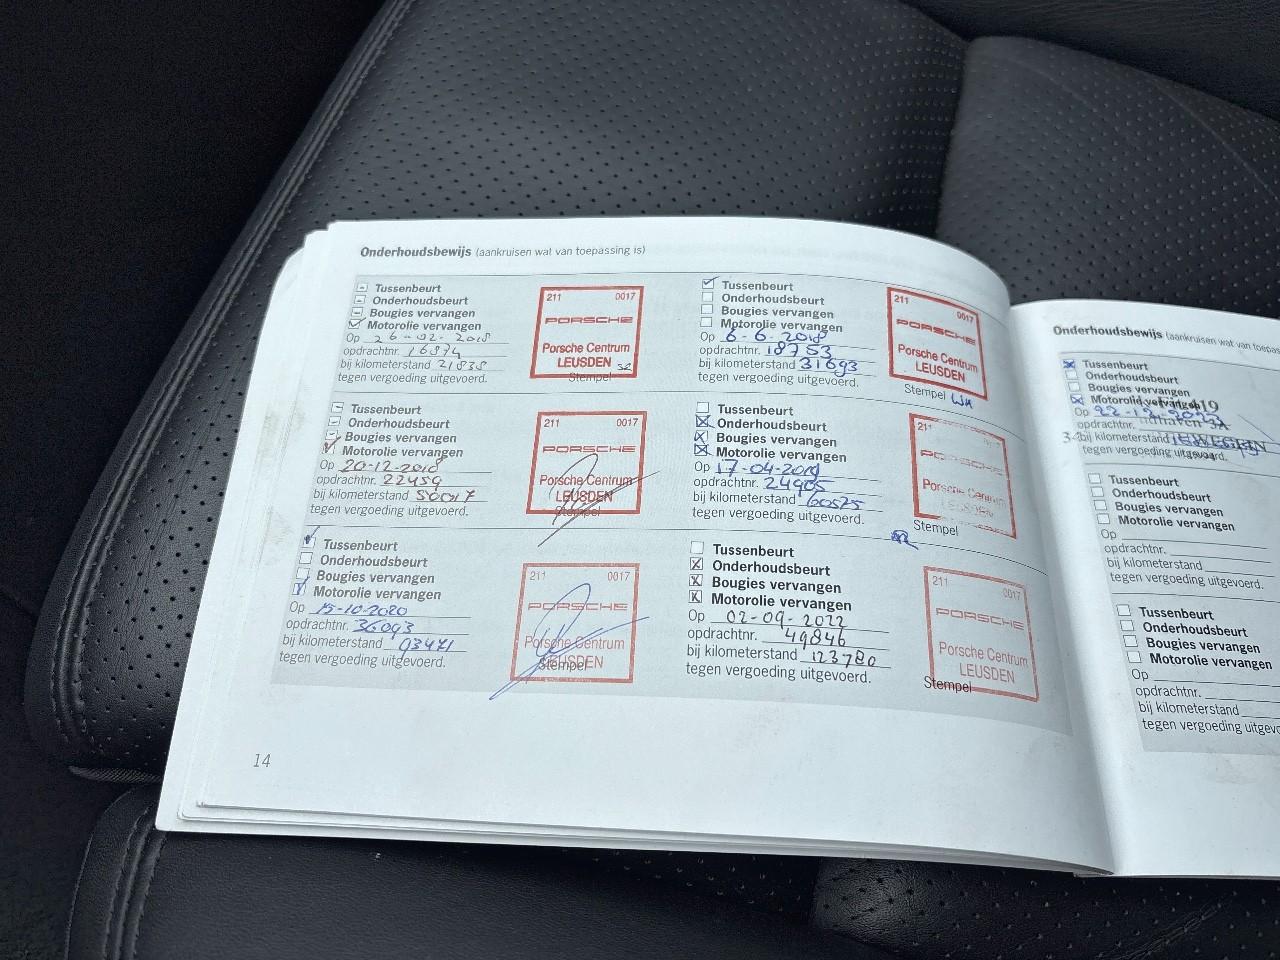 Onderhoudsbewijs (aankruisen wat van toepassing is)
Tussenbeurt
Onderhoudsbeurt
Bougies vervangen
Motorolie vervangen
Op 26-02-2018
opdrachtnr. 16874
bij kilometerstand 21838
tegen vergoeding uitgevoerd.
211 0017
PORSCHE
Porsche Centrum
LEUSDEN
Stempel
Tussenbeurt
Onderhoudsbeurt
Bougies vervangen
Motorolie vervangen
Op 6-6-2018
opdrachtnr. 18753
bij kilometerstand 31693
tegen vergoeding uitgevoerd.
211 0017
PORSCHE
Porsche Centrum
LEUSDEN
Stempel
Tussenbeurt
Onderhoudsbeurt
Bougies vervangen
Motorolie vervangen
Op 20-12-2018
opdrachtnr. 22459
bij kilometerstand 50017
tegen vergoeding uitgevoerd.
211 0017
PORSCHE
Porsche Centrum
LEUSDEN
Stempel
Tussenbeurt
Onderhoudsbeurt
Bougies vervangen
Motorolie vervangen
Op 17-04-2019
opdrachtnr. 24905
bij kilometerstand 60575
tegen vergoeding uitgevoerd.
211
PORSCHE
Porsche Centrum
LEUSDEN
Stempel
Tussenbeurt
Onderhoudsbeurt
Bougies vervangen
Motorolie vervangen
Op 15-10-2020
opdrachtnr. 36093
bij kilometerstand 93471
tegen vergoeding uitgevoerd.
211 0017
PORSCHE
Porsche Centrum
LEUSDEN
Stempel
Tussenbeurt
Onderhoudsbeurt
Bougies vervangen
Motorolie vervangen
Op 02-09-2022
opdrachtnr. 49846
bij kilometerstand 123780
tegen vergoeding uitgevoerd.
211 0017
PORSCHE
Porsche Centrum
LEUSDEN
Stempel
14
Onderhoudsbewijs (aankruisen wat van toepas
Tussenbeurt
Onderhoudsbeurt
Bougies vervangen
Motorolie vervangen
Op 22-12-
opdrachtnr.
bij kilometerstand
tegen vergoeding uitgevoerd.
Tussenbeurt
Onderhoudsbeurt
Bougies vervangen
Motorolie vervangen
Op
opdrachtnr.
bij kilometerstand
tegen vergoeding uitgevoerd.
Tussenbeurt
Onderhoudsbeurt
Bougies vervangen
Motorolie vervangen
Op
opdrachtnr.
bij kilometerstand
tegen vergoeding uitgevo